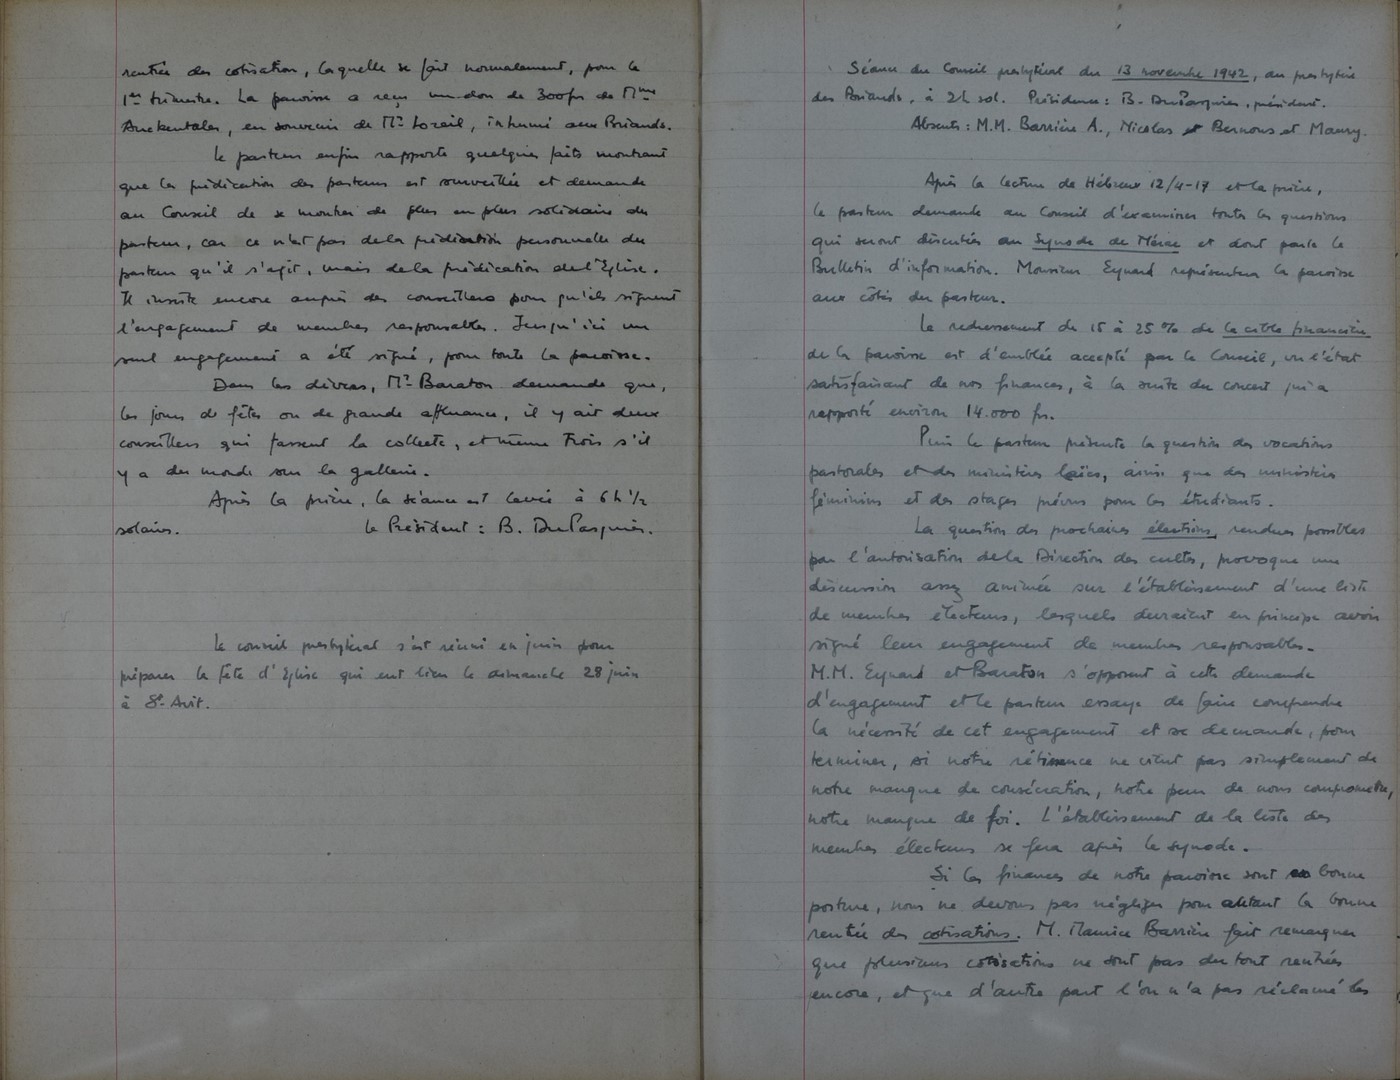 rentrée des cotisation, laquelle se fait normalement, pour le
1er trimestre. La paroisse a reçu un don de 300 frs de Mme
en souvenir de Mr Loreil, inhumé aux Briands.
Le pasteur enfin rapporte quelques faits montrant
que la prédication des pasteurs est surveillée et demande
au Conseil de se montrer de plus en plus solidaire du
pasteur, car ce n'est pas de la prédication personnelle du
pasteur qu'il s'agit, mais de la prédication de l'Eglise.
Il insiste encore auprès des conseillers pour qu'ils signent
l'engagement de membres responsables. Jusqu'ici un
seul engagement a été signé, pour toute la paroisse.
Dans les divers, Mr Baraton demande que,
les jours de fêtes ou de grande affluence, il y ait deux
conseillers qui fassent la collecte, et même trois s'il
y a du monde sur la gallerie.
Après la prière, la séance est levée à 6 h 1/2
solaires. Le Président : B. DuPasquier.
Le conseil presbytéral s'est réuni en juin pour
préparer la fête d'Eglise qui eut lieu le dimanche 28 juin
à St Avit.
Séance du Conseil presbytéral du 13 novembre 1942, au presbytère
des Briands, à 2h sol. Présidence : B. DuPasquier, président.
Absents : M.M. Barrière A., Nicolas et Bernous et Maury.
Après la lecture de Hébreux 12/4-17 et la prière,
le pasteur demande au Conseil d'examiner toutes les questions
qui seront discutées au Synode de Mérac et dont parle le
Bulletin d'information. Monsieur Eynard représentera la paroisse
aux côtés du pasteur.
Le redressement de 15 à 25 % de la cible financière
de la paroisse est d'emblée accepté par le Conseil, vu l'état
satisfaisant de nos finances, à la suite du concert qui a
rapporté environ 14.000 frs.
Puis le pasteur présente la question des vocations
pastorales et des ministères laïcs, ainsi que des ministères
féminins et des stages prévus pour les étudiants.
La question des prochaines élections, rendues possibles
par l'autorisation de la Direction des cultes, provoque une
discussion assez animée sur l'établissement d'une liste
de membres électeurs, lesquels devraient en principe avoir
signé leur engagement de membres responsables.
M.M. Eynard et Baraton s'opposent à cette demande
d'engagement et le pasteur essaye de faire comprendre
la nécessité de cet engagement et se demande, pour
terminer, si notre rétissence ne vient pas simplement de
notre manque de consécration, notre peur de nous compromettre,
notre manque de foi. L'établissement de la liste des
membres électeurs se fera après le synode.
Si les finances de notre paroisse sont en bonne
posture, nous ne devons pas négliger pour autant la bonne
rentrée des cotisations. M. Maurice Barrière fait remarquer
que plusieurs cotisations ne sont pas du tout rentrées
encore, et que d'autre part l'on n'a pas réclamé les